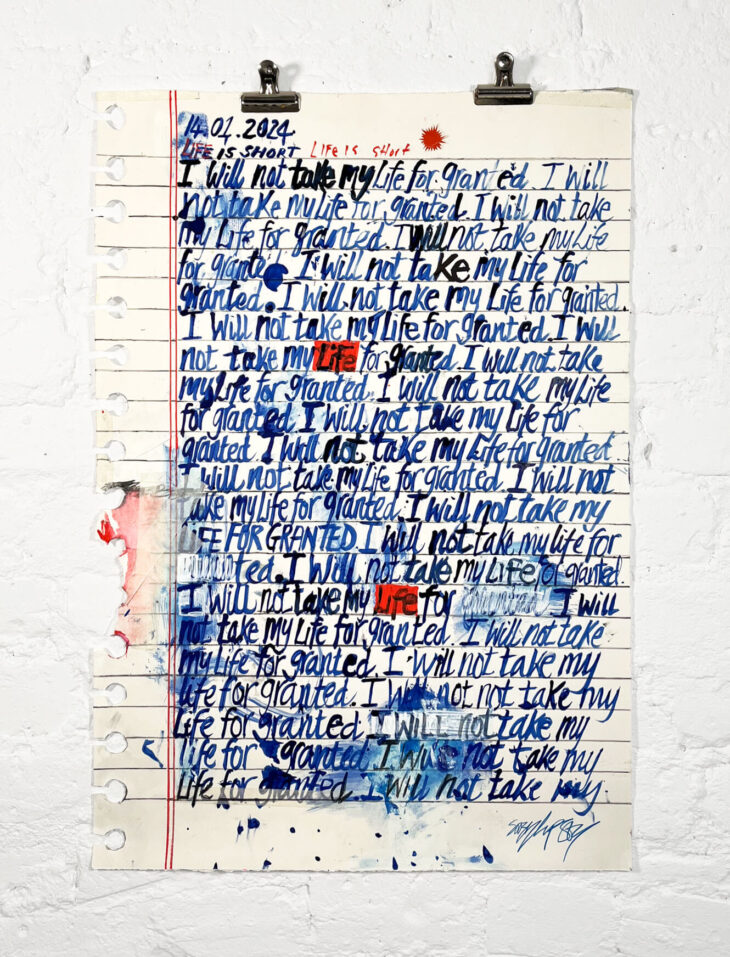 14.01.2024
LIFE IS SHORT LIFE is short
I will not take my Life for granted. I will
not take my Life for granted. I will not take
my Life for granted. I will not take my Life
for granted I will not take my Life for
granted. I will not take my Life for granted.
I will not take my Life for granted. I will
not take my Life for granted. I will not take
my Life for granted. I will not take my Life
for granted I will not take my Life for
granted. I will not take my Life for granted
I will not take my Life for granted. I will not
take my Life for granted. I will not take my
LIFE FOR GRANTED. I will not take my life for
ted. I will not take my Life for granted.
I will not take my Life for I will
not take my Life for granted. I will not take
my Life for granted. I will not take my
life for granted. I will not not take my
Life for granted. I WILL not take my
life for granted. I will not take my
Life for granted. I will not take my